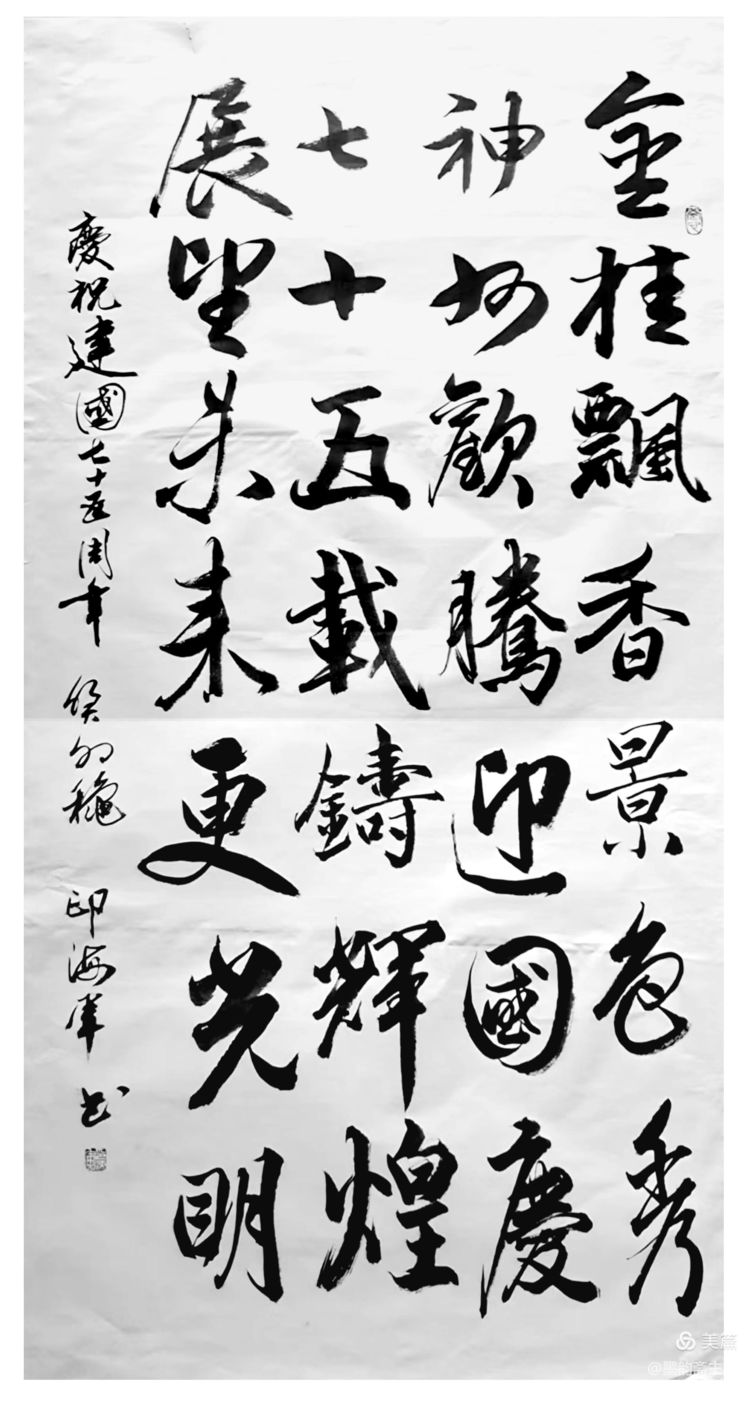 金桂飄香景色秀
神州歡騰迎國慶
七十五載鑄輝煌
展望未来更光明
慶祝建國七十五周年 癸卯穐 印海軍书
美篇
@墨韵斋主